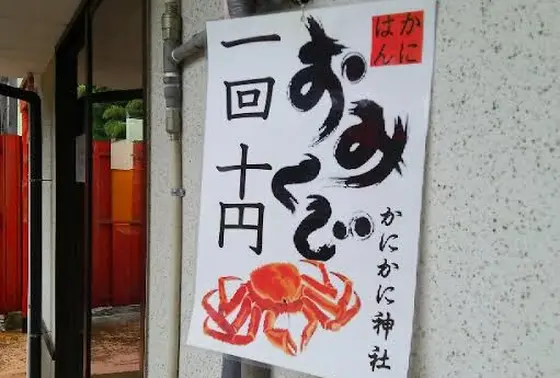 かに
はん
おみくじ
一回 十円
かにかに神社